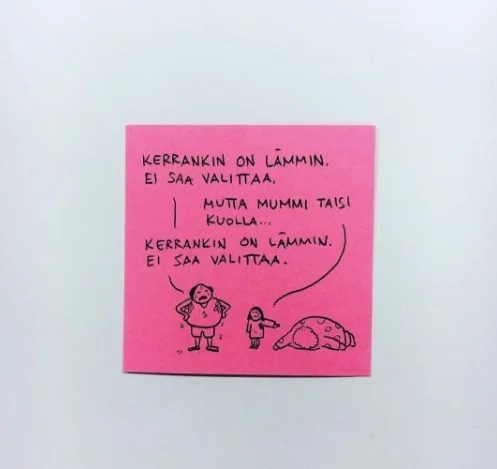 KERRANKIN ON LÄMMIN.
EI SAA VALITTAA.
MUTTA MUMMI TAISI
KUOLLA...
KERRANKIN ON LÄMMIN.
EI SAA VALITTAA.